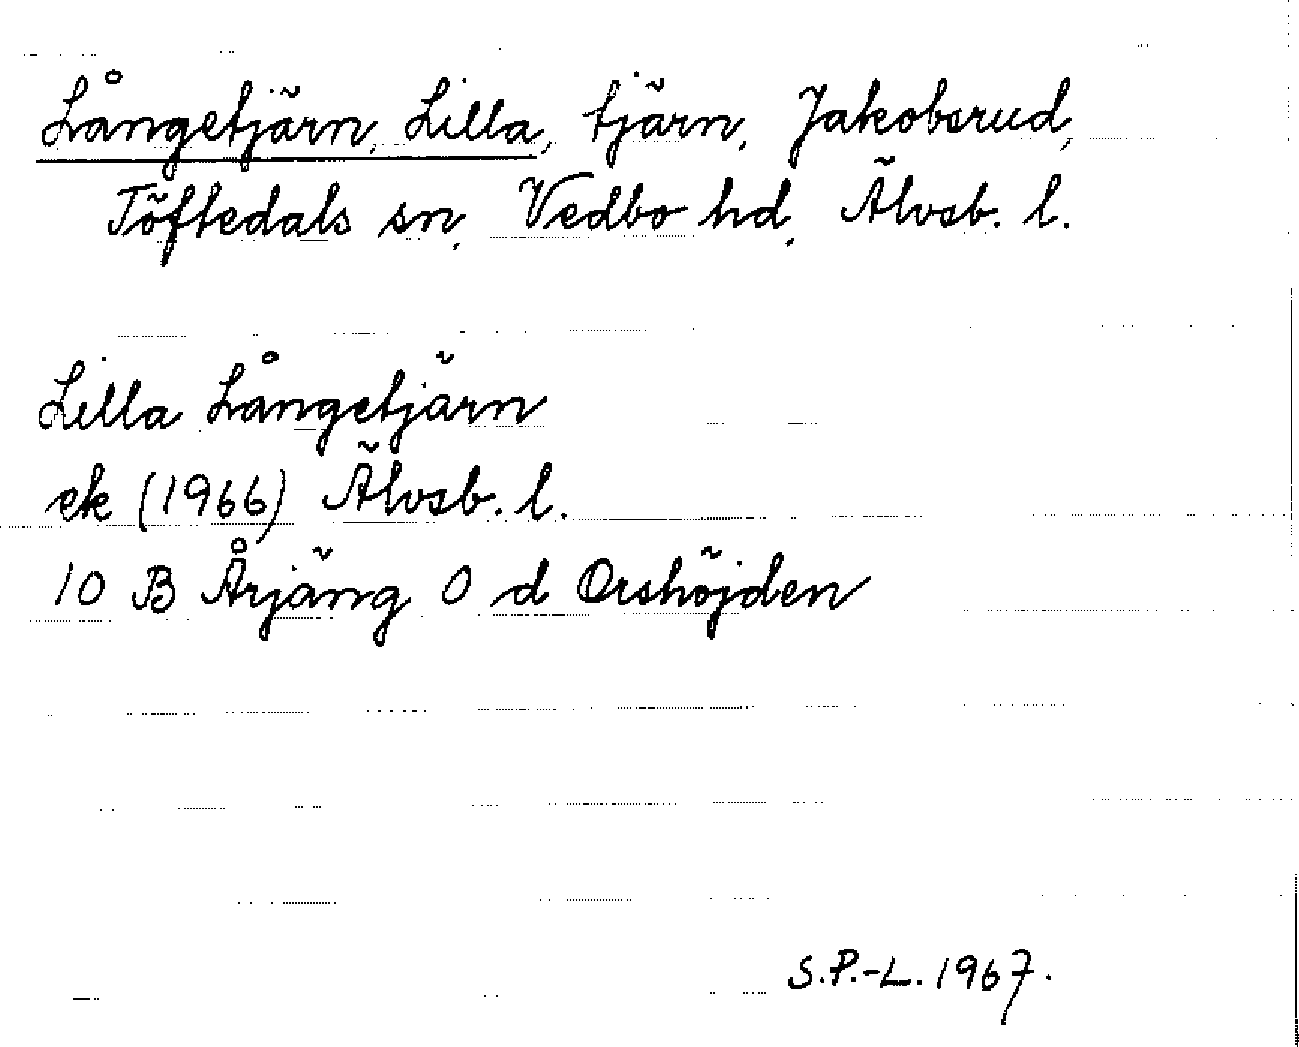 Långetjärn, Lilla, tjärn, Jakobsrud,
Töftedals sn, Vedbo hd, Älvsb. l.
Lilla Långetjärn
ek (1966) Älvsb. l.
10 B Årjäng 0 d Orshöjden
S.P.-L. 1967.